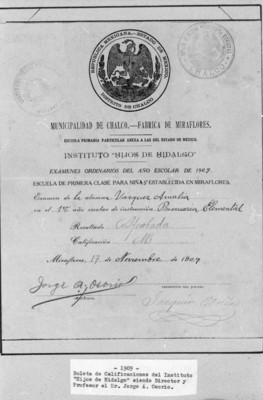 REPUBLICA MEXICANA.-ESTADO DE MEXICO.
DISTRITO DE CHALCO
MUNICIPALIDAD DE CHALCO.—FABRICA DE MIRAFLORES.
ESCUELA PRIMARIA PARTICULAR ANEXA A LAS DEL ESTADO DE MEXICO.
INSTITUTO "HIJOS DE HIDALGO"
EXAMENES ORDINARIOS DEL AÑO ESCOLAR DE 1909.
ESCUELA DE PRIMERA CLASE PARA NIÑAS ESTABLECIDA EN MIRAFLORES.
Examen de la alumna Vazquez Amalia
en el 1er año escolar de instrucción Primaria Elemental
Resultado Aprobada
Calificación M
Miraflores, 17 de Noviembre de 1909
Jorge A. Osorio
Joaquin
- 1909 -
Boleta de Calificaciones del Instituto
"Hijos de Hidalgo" siendo Director y
Profesor el Sr. Jorge A. Osorio.